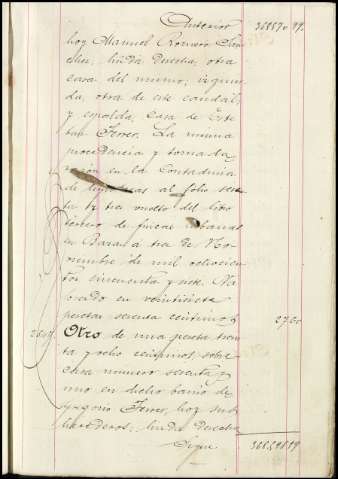 Anterior 36257 99.
hoy Manuel Romero Sán
chez; linda derecha, otra
casa del mismo; izquier
da, otra de este caudal;
y espalda, casa de Este
ban Ferrer. La misma
procedencia y tomada
razón en la Contaduría
de hipotecas al folio sese
ta y tres vuelto del libro
tercero de fincas urbanas
en Baza á tres de No
viembre de mil ochocien
tos cincuenta y siete. Va
lorado en veintisiete
pesetas sesenta céntimos 27 60
Otro de una peseta trein
ta y ocho céntimos, sobre
casa número sesenta y
uno en dicho barrio de
Ferrer, hoy sus
herederos; linda derecha
Sigue